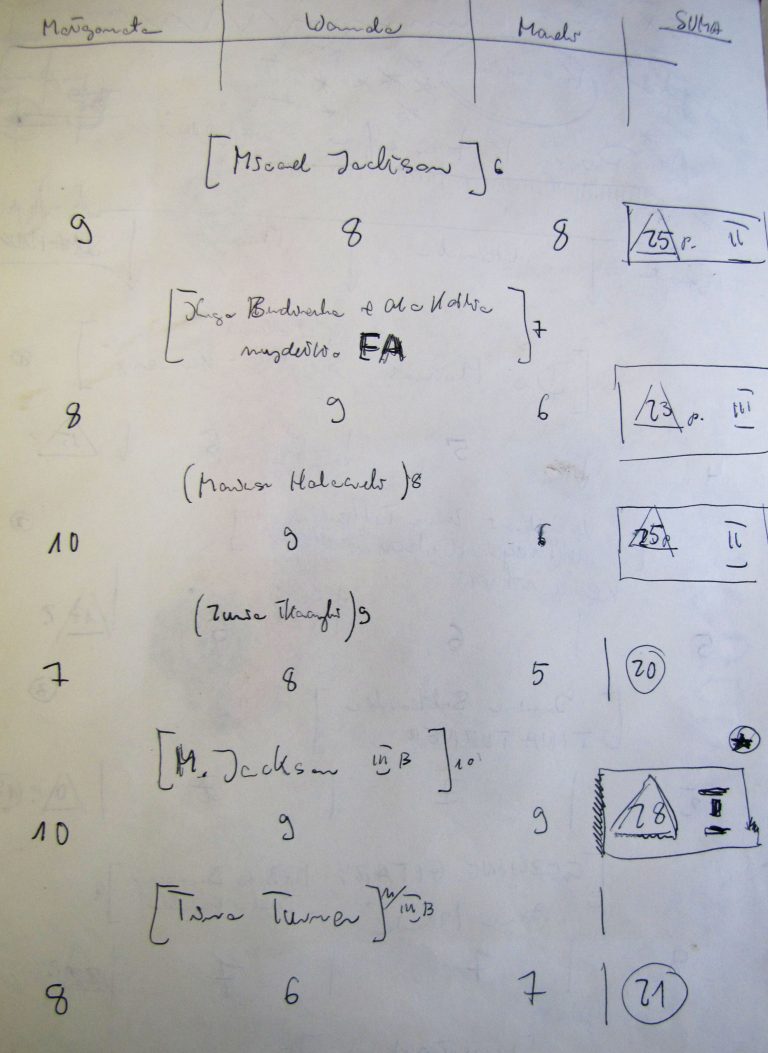 Małgorzata Wanda Marek SUMA
[Micael Jackson] 6
9 8 8 25 p. II
[Kinga e Ola
FA ] 7
8 9 6 23 p. III
( ) 8
10 9 6 25 p. II
(Zuzia ) 9
7 8 5 20
[M. Jackson III B ] 10
10 9 9 28 I
[Tina Turner] 11/ III B
8 6 7 21